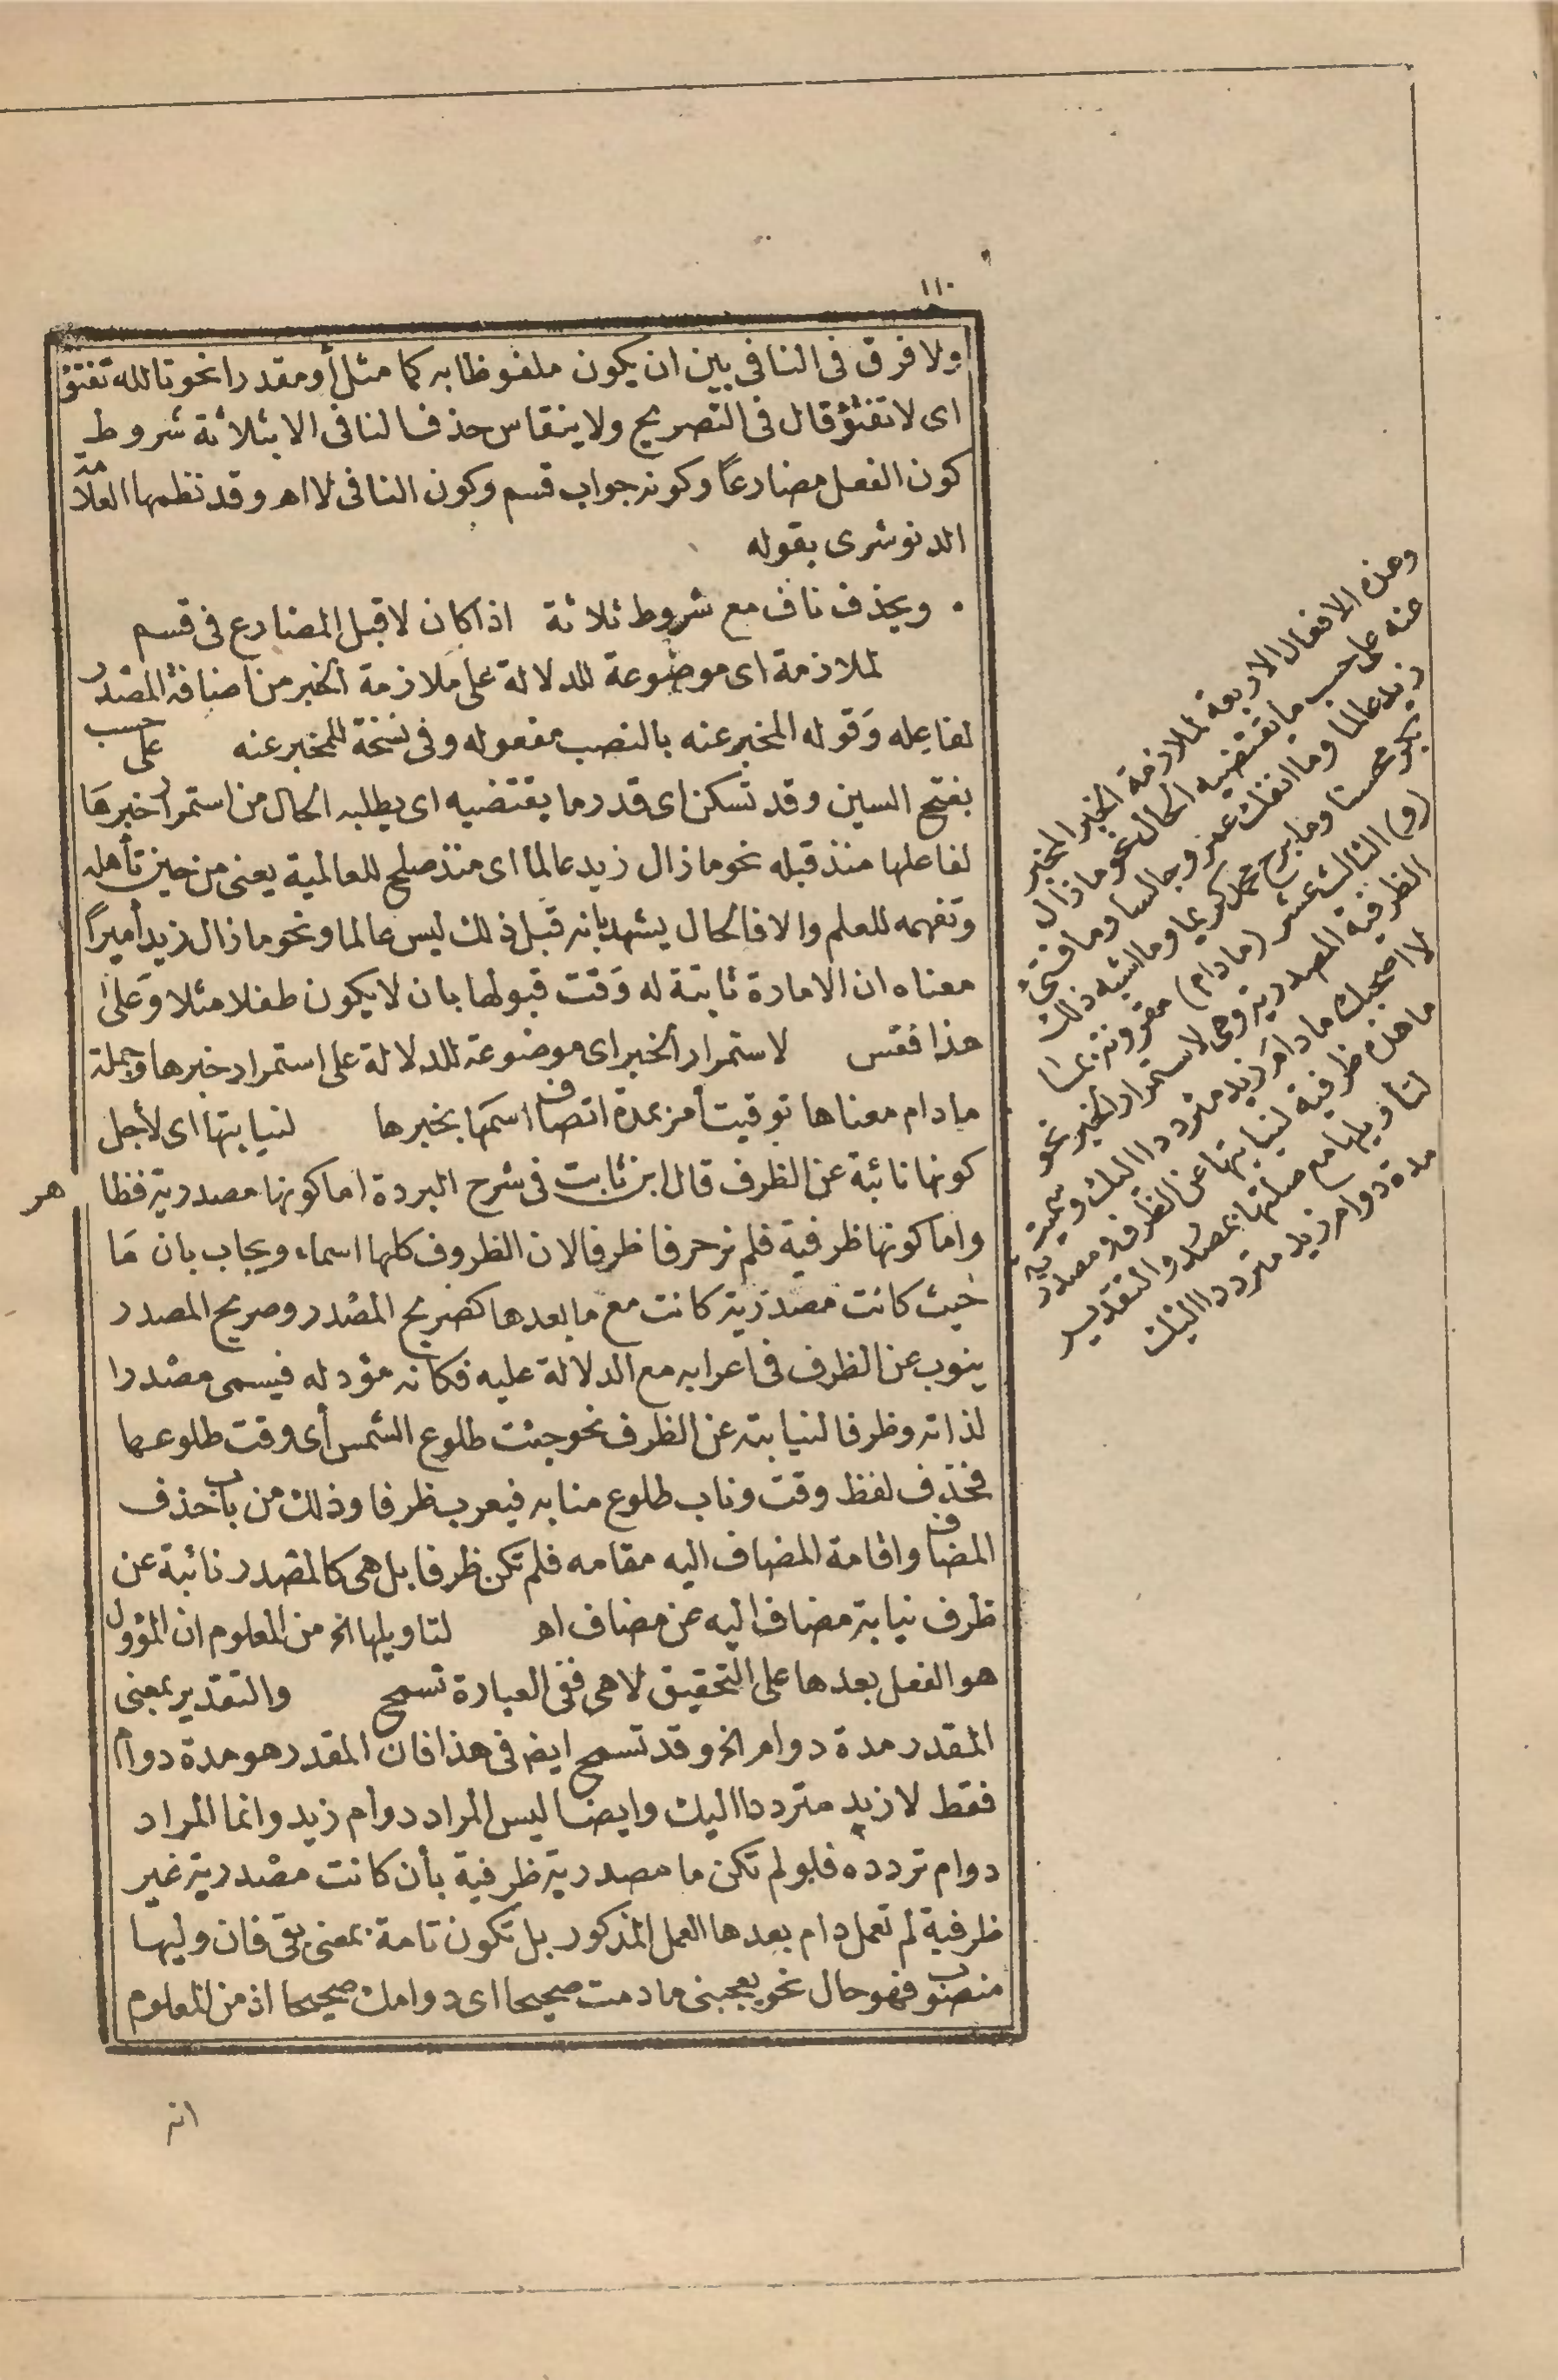 ١١٠
ولا فرق فى النافى بين ان يكون ملفوظا به كما مثل أو مقدرا نحو تالله تفتؤ
اى لا تفتؤ قال فى التصريح ولا ينقاس حذف النافى الا بثلاثة شروط
كون الفعل مضارعاً وكونه جواب قسم وكون النافى لا اهـ وقد نظمها العلامة
الدنوشرى بقوله
ويحذف ناف مع شروط ثلاثة اذا كان لا قبل المضارع فى قسم
لملازمة اى موضوعة للدلالة على ملازمة الخبر من اضافة المصدر
لفاعله وقوله المخبر عنه بالنصب مفعوله وفى نسخة للمخبر عنه على حسب
بفتح السين وقد تسكن اى قدر ما يقتضيه اى يطلبه الحال من استمرار خبرها
لفاعلها منذ قبله نحو ما زال زيد عالما اى منذ صلح للعالمية يعنى من حين تأهله
وتفهمه للعلم والا فالحال يشهد بانه قبل ذلك ليس عالما ونحو ما زال زيد أميراً
معناه ان الامارة ثابتة له وقت قبولها بان لا يكون طفلا مثلا وعلى
هذا فقس لاستمرار الخبر اى موضوعة للدلالة على استمرار خبرها وجملة
ما دام معناها توقيت أمر بمدة اتصاف اسمها بخبرها لنيابتها اى لأجل
كونها نائبة عن الظرف قال ابن ثابت فى شرح البردة اما كونها مصدرية فظاهر
واما كونها ظرفية فلم نر حرفا ظرفا لان الظروف كلها اسماء ويجاب بان ما
حيث كانت مصدرية كانت مع ما بعدها كصريح المصدر وصريح المصدر
ينوب عن الظرف فى اعرابه مع الدلالة عليه فكانه مؤد له فيسمى مصدرا
لذاته وظرفا لنيابته عن الظرف نحو جئت طلوع الشمس أى وقت طلوعها
فحذف لفظ وقت وناب طلوع منابه فيعرب ظرفا وذلك من باب حذف
المضاف واقامة المضاف اليه مقامه فلم تكن ظرفا بل هى كالمصدر نائبة عن
ظرف نيابة مضاف اليه عن مضاف اهـ لتاويلها الخ من المعلوم ان المؤول
هو الفعل بعدها على التحقيق لا هى ففى العبارة تسمح والتقدير بمعنى
المقدر مدة دوام الخ وقد تسمح ايضا فى هذا فان المقدر هو مدة دوام
فقط لا زيد مترددا اليك وايضا ليس المراد دوام زيد وانما المراد
دوام تردده فلو لم تكن ما مصدرية ظرفية بأن كانت مصدرية غير
ظرفية لم تعمل دام بعدها العمل المذكور بل تكون تامة بمعنى بقى فان وليها
منصوب فهو حال نحو يعجبنى ما دمت صحيحا اى دوامك صحيحا اذ من المعلوم
انه
وهذه الافعال الاربعة لملازمة الخبر المخبر
عنه على حسب ما يقتضيه الحال نحو ما زال
زيد عالما وما انفك عمرو جالسا وما فتئ
بكر محسنا وما برح محمد كريما وما اشبه ذلك
(و) الثالث عشر (ما دام) مقرونة بما
الظرفية المصدرية وهى لاستمرار الخبر نحو
لا اصحبك ما دام زيد مترددا اليك وسميت
ما هذه ظرفية لنيابتها عن الظرف ومصدرية
لتأويلها مع صلتها بمصدر والتقدير
مدة دوام زيد مترددا اليك